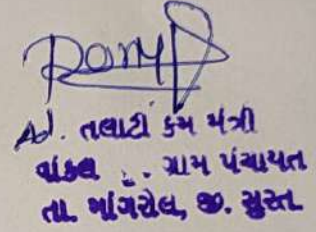 Ad. તલાટી કમ મંત્રી
વાંકલ ગ્રામ પંચાયત
તા. માંગરોલ, જી. સુરત